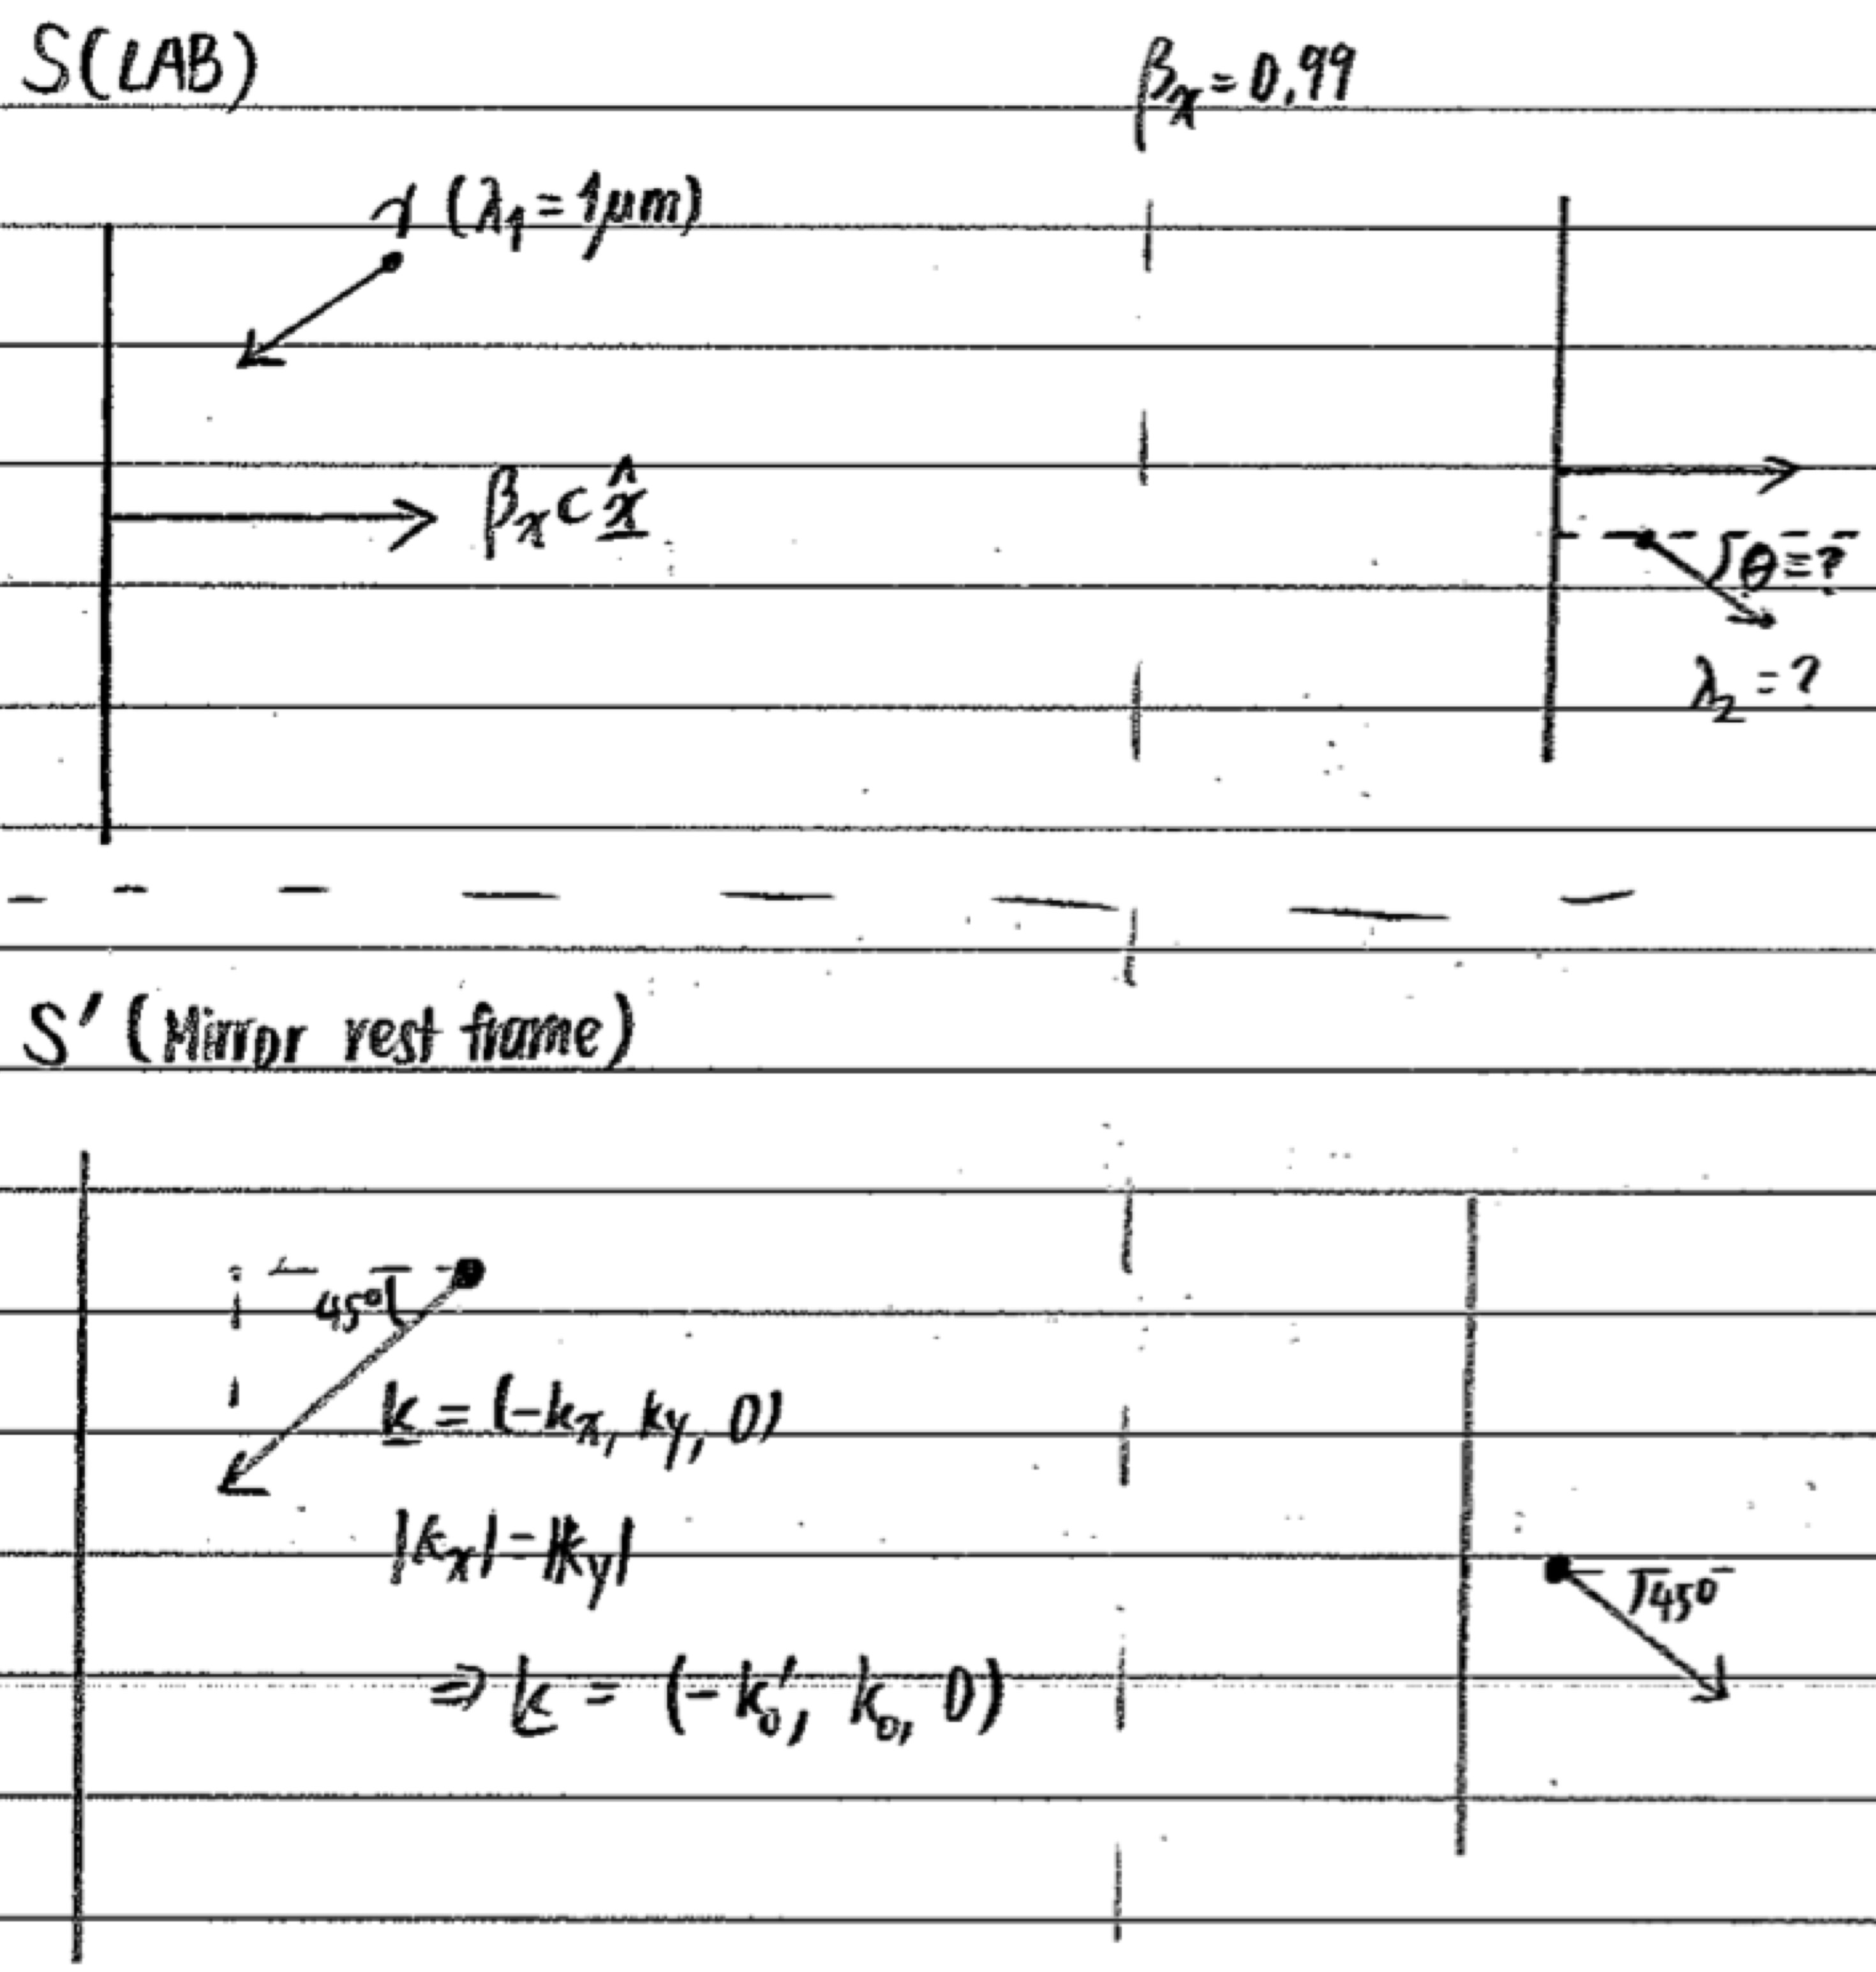 S(LAB)
βx = 0,99
γ (λ1 = 1μm)
βx c x̂
θ = ?
λ2 = ?
S' (Mirror rest frame)
45°
k = (-kx, ky, 0)
|kx| = |ky|
⇒ k = (-k0', k0, 0)
45°